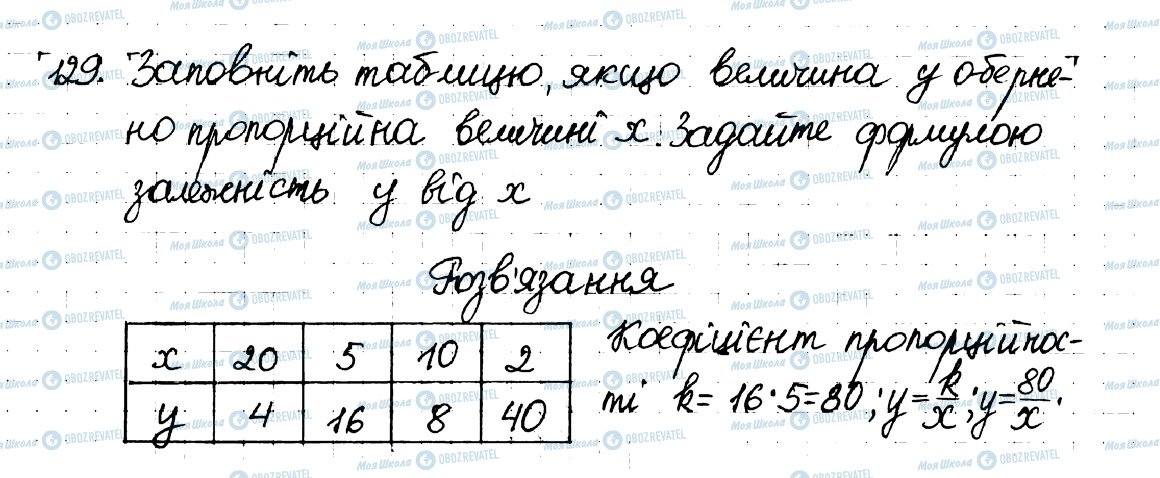 129. Заповніть таблицю, якщо величина у оберне-
но пропорційна величині х. Задайте формулою
залежність у від х
Розв'язання
х 20 5 10 2
у 4 16 8 40
Коефіцієнт пропорційнос-
ті k = 16·5=80; у = k/x; у = 80/x.
МояШкола OBOZREVATEL